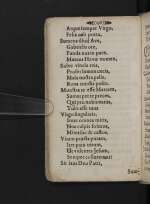 Atque semper Virgo,
Felix cœli porta.
Sumens illud Ave,
Gabrielis ore,
Funda nos in pace,
Mutans Hevæ nomen.
Solve vincla reis,
Profer lumen cæcis,
Mala nostra pelle,
Bona cuncta posce.
Monstra te esse Matrem,
Sumat per te preces,
Qui pro nobis natus,
Tulit esse tuus.
Virgo singularis,
Inter omnes mitis,
Nos culpis solutos,
Mites fac & castos.
Vitam præsta puram,
Iter para tutum,
Ut videntes Jesum,
Semper collætemur.
Sit laus Deo Patri,